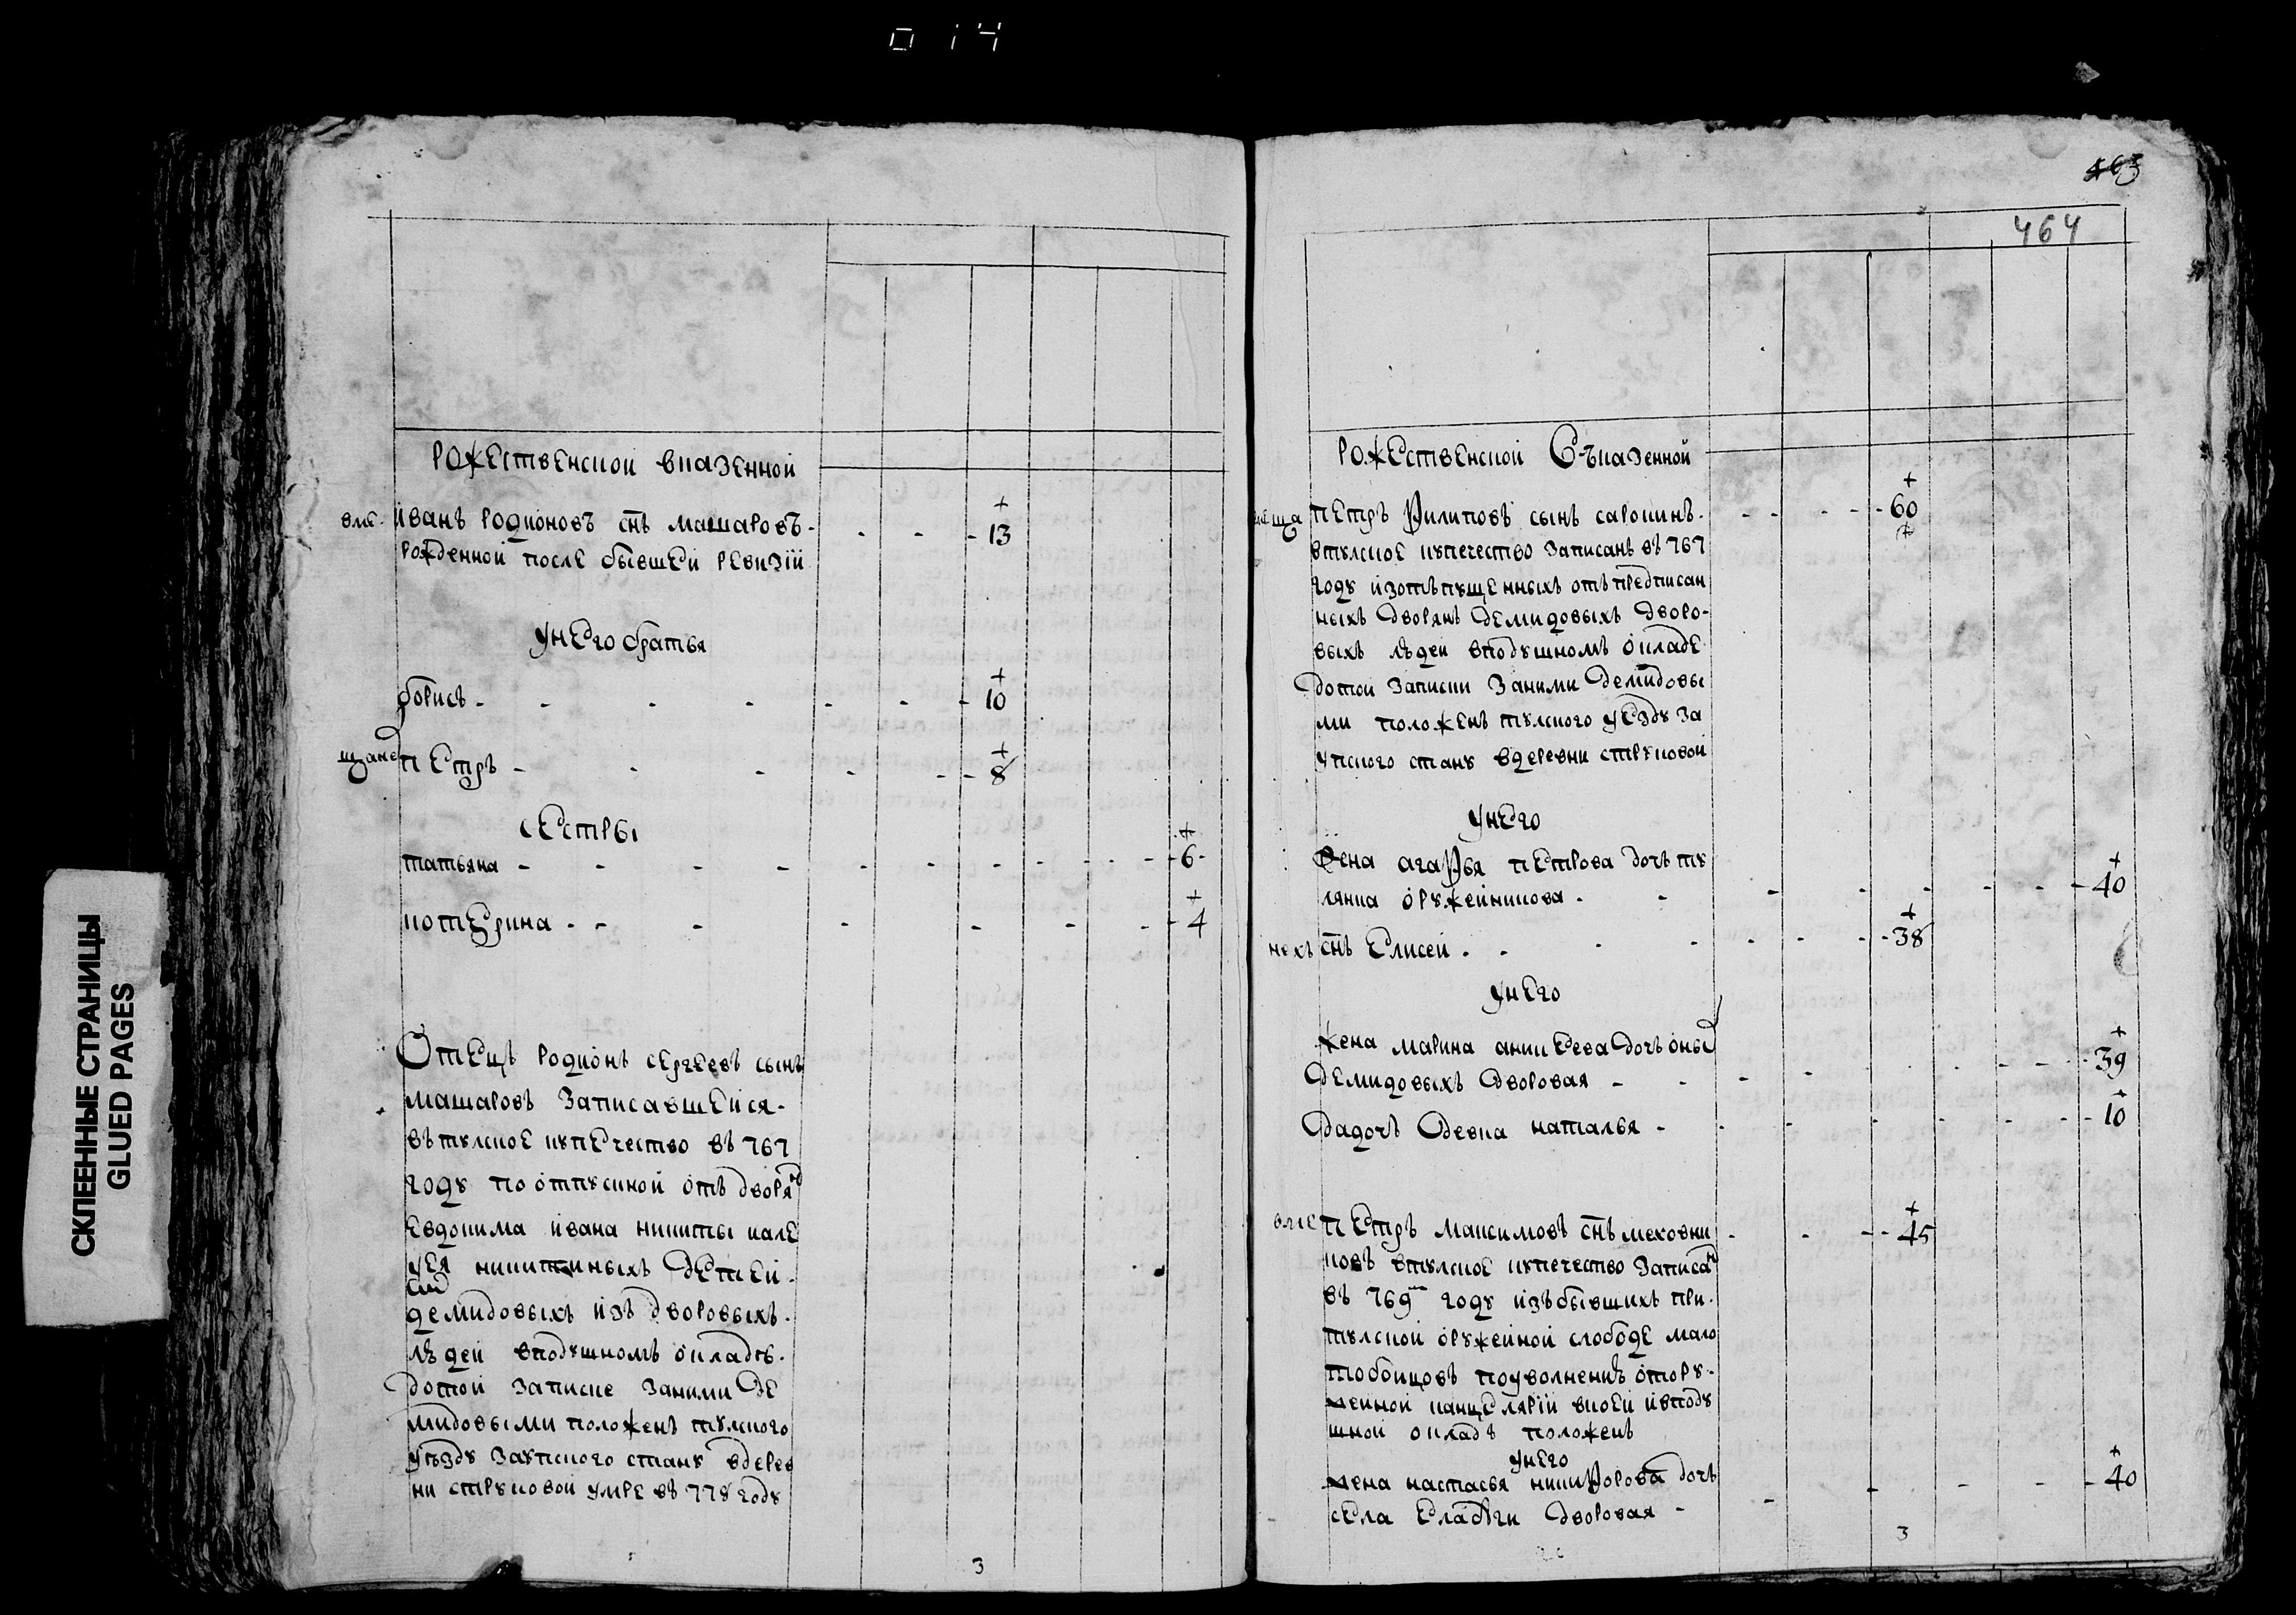 014
СКЛЕЕННЫЕ СТРАНИЦЫ
GLUED PAGES
рожественской вказенной
иванъ родионовъ снъ машаровъ - - - 13
рожденной после бывшей ревизiи
унего братья
борисъ - - - - - - - 10
петръ - - - - - - 8
сестры
татьяна - - - - - - - - - - - 6 -
катерина - - - - - - - - 4
Отецъ родионъ сергеевъ сынъ
машаровъ записавшейся -
въ тулское купечество въ 767
году по отпускной отъ дворян
евдокима ивана никиты и але
ѯея никитиныхъ детей -
демидовыхъ изъ дворовыхъ -
людей вподушномъ окладъ -
до той записке заними де
мидовыми положенъ тулского
уѣзду заупского стану вдерев
ни струковой умре въ 778 году
3
463
464
рожественской Съказенной
петръ филиповъ сынъ сарокинъ - - - - - 60
втулское купечество записанъ въ 767
году изотъпущенныхъ отъ предписан
ныхъ дворянъ демидовыхъ дворо-
выхъ людей вподушномъ окладе
до той записки заними демидовы
ми положенъ тулского уезду за
упского стану вдеревни струковой
унего
жена агафья петрова дочь ту
лянка оружейникова - - - - - - - - 40
снъ елисей - - - - - - - 38
унего
жена марина аникеева дочь оных
демидовыхъ дворовая - - - - - - 39
да дочь девка наталья - - - - - - - 10
петръ максимовъ снъ меховни - - - - 45
ковъ втулское купечество записан
въ 769м году изъ бывшихъ при -
тулской оружейной слободе мало
тобойцовъ поуволнению отору -
жейной канцелярiи вкоей ивподу
шной окладъ положенъ
унего
жена настасья никифорова дочь - - - - - 40
села дворовая -
3